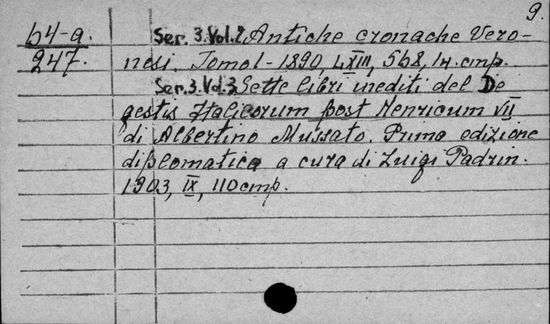 9.
64-a. Ser. 3. Vol. 2 Antiche cronache Vero-
247. nesi. Tomo I - 1890, LXIII, 568, 1н. стр.
Ser. 3. Vol. 3 Sette libri inediti del De
gestis Italicorum post Henricum VII
di Albertino Mussato. Prima edizione
diplomatica a cura di Luigi Padrin.
1903, IX, 110 стр.